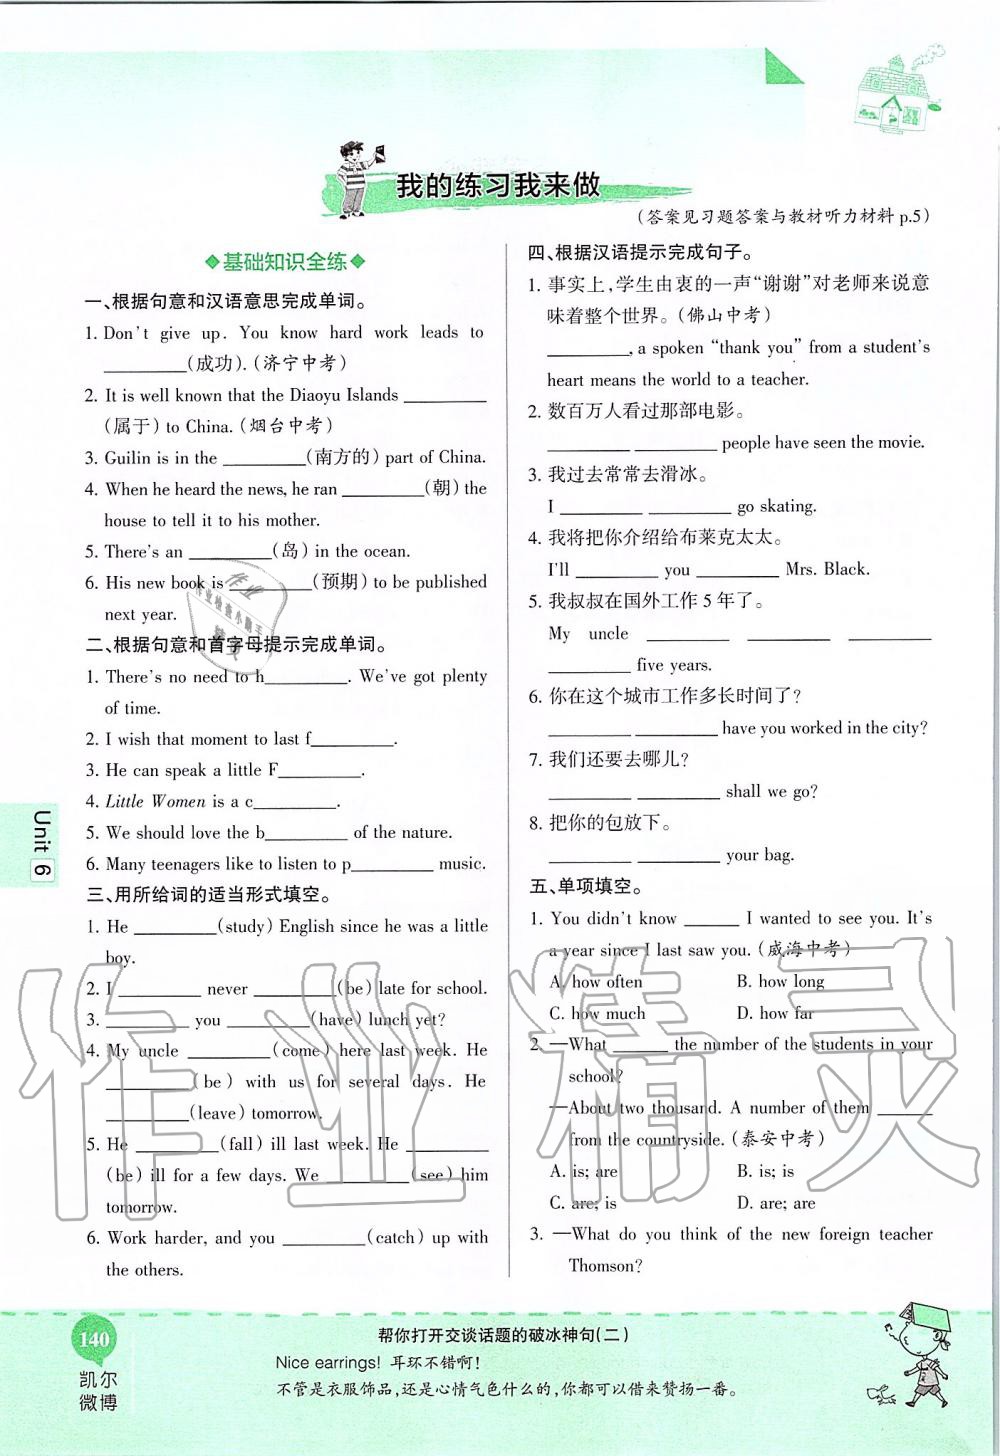 我的练习我来做
(答案见习题答案与教材听力材料 p.5)
◆基础知识全练◆
一、根据句意和汉语意思完成单词。
1. Don't give up. You know hard work leads to
_________(成功). (济宁中考)
2. It is well known that the Diaoyu Islands _________
(属于) to China. (烟台中考)
3. Guilin is in the _________(南方的) part of China.
4. When he heard the news, he ran _________(朝) the
house to tell it to his mother.
5. There's an _________(岛) in the ocean.
6. His new book is _________(预期) to be published
next year.
二、根据句意和首字母提示完成单词。
1. There's no need to h_________. We've got plenty
of time.
2. I wish that moment to last f_________.
3. He can speak a little F_________.
4. Little Women is a c_________.
5. We should love the b_________ of the nature.
6. Many teenagers like to listen to p_________ music.
三、用所给词的适当形式填空。
1. He _________(study) English since he was a little
boy.
2. I _________ never _________(be) late for school.
3. _________ you _________(have) lunch yet?
4. My uncle _________(come) here last week. He
_________(be) with us for several days. He
_________(leave) tomorrow.
5. He _________(fall) ill last week. He _________
(be) ill for a few days. We _________(see) him
tomorrow.
6. Work harder, and you _________(catch) up with
the others.
四、根据汉语提示完成句子。
1. 事实上,学生由衷的一声“谢谢”对老师来说意
味着整个世界。(佛山中考)
_________, a spoken “thank you” from a student's
heart means the world to a teacher.
2. 数百万人看过那部电影。
_________ _________ people have seen the movie.
3. 我过去常常去滑冰。
I _________ _________ go skating.
4. 我将把你介绍给布莱克太太。
I'll _________ you _________ Mrs. Black.
5. 我叔叔在国外工作 5 年了。
My uncle _________ _________ _________
_________ five years.
6. 你在这个城市工作多长时间了?
_________ _________ have you worked in the city?
7. 我们还要去哪儿?
_________ _________ shall we go?
8. 把你的包放下。
_________ _________ your bag.
五、单项填空。
1. You didn't know ______ I wanted to see you. It's
a year since I last saw you. (威海中考)
A. how often B. how long
C. how much D. how far
2. —What ______ the number of the students in your
school?
—About two thousand. A number of them ______
from the countryside. (泰安中考)
A. is; are B. is; is
C. are; is D. are; are
3. —What do you think of the new foreign teacher
Thomson?
Unit 6
140
凯尔
微博
帮你打开交谈话题的破冰神句(二)
Nice earrings! 耳环不错啊!
不管是衣服饰品,还是心情气色什么的,你都可以借来赞扬一番。
作业精灵